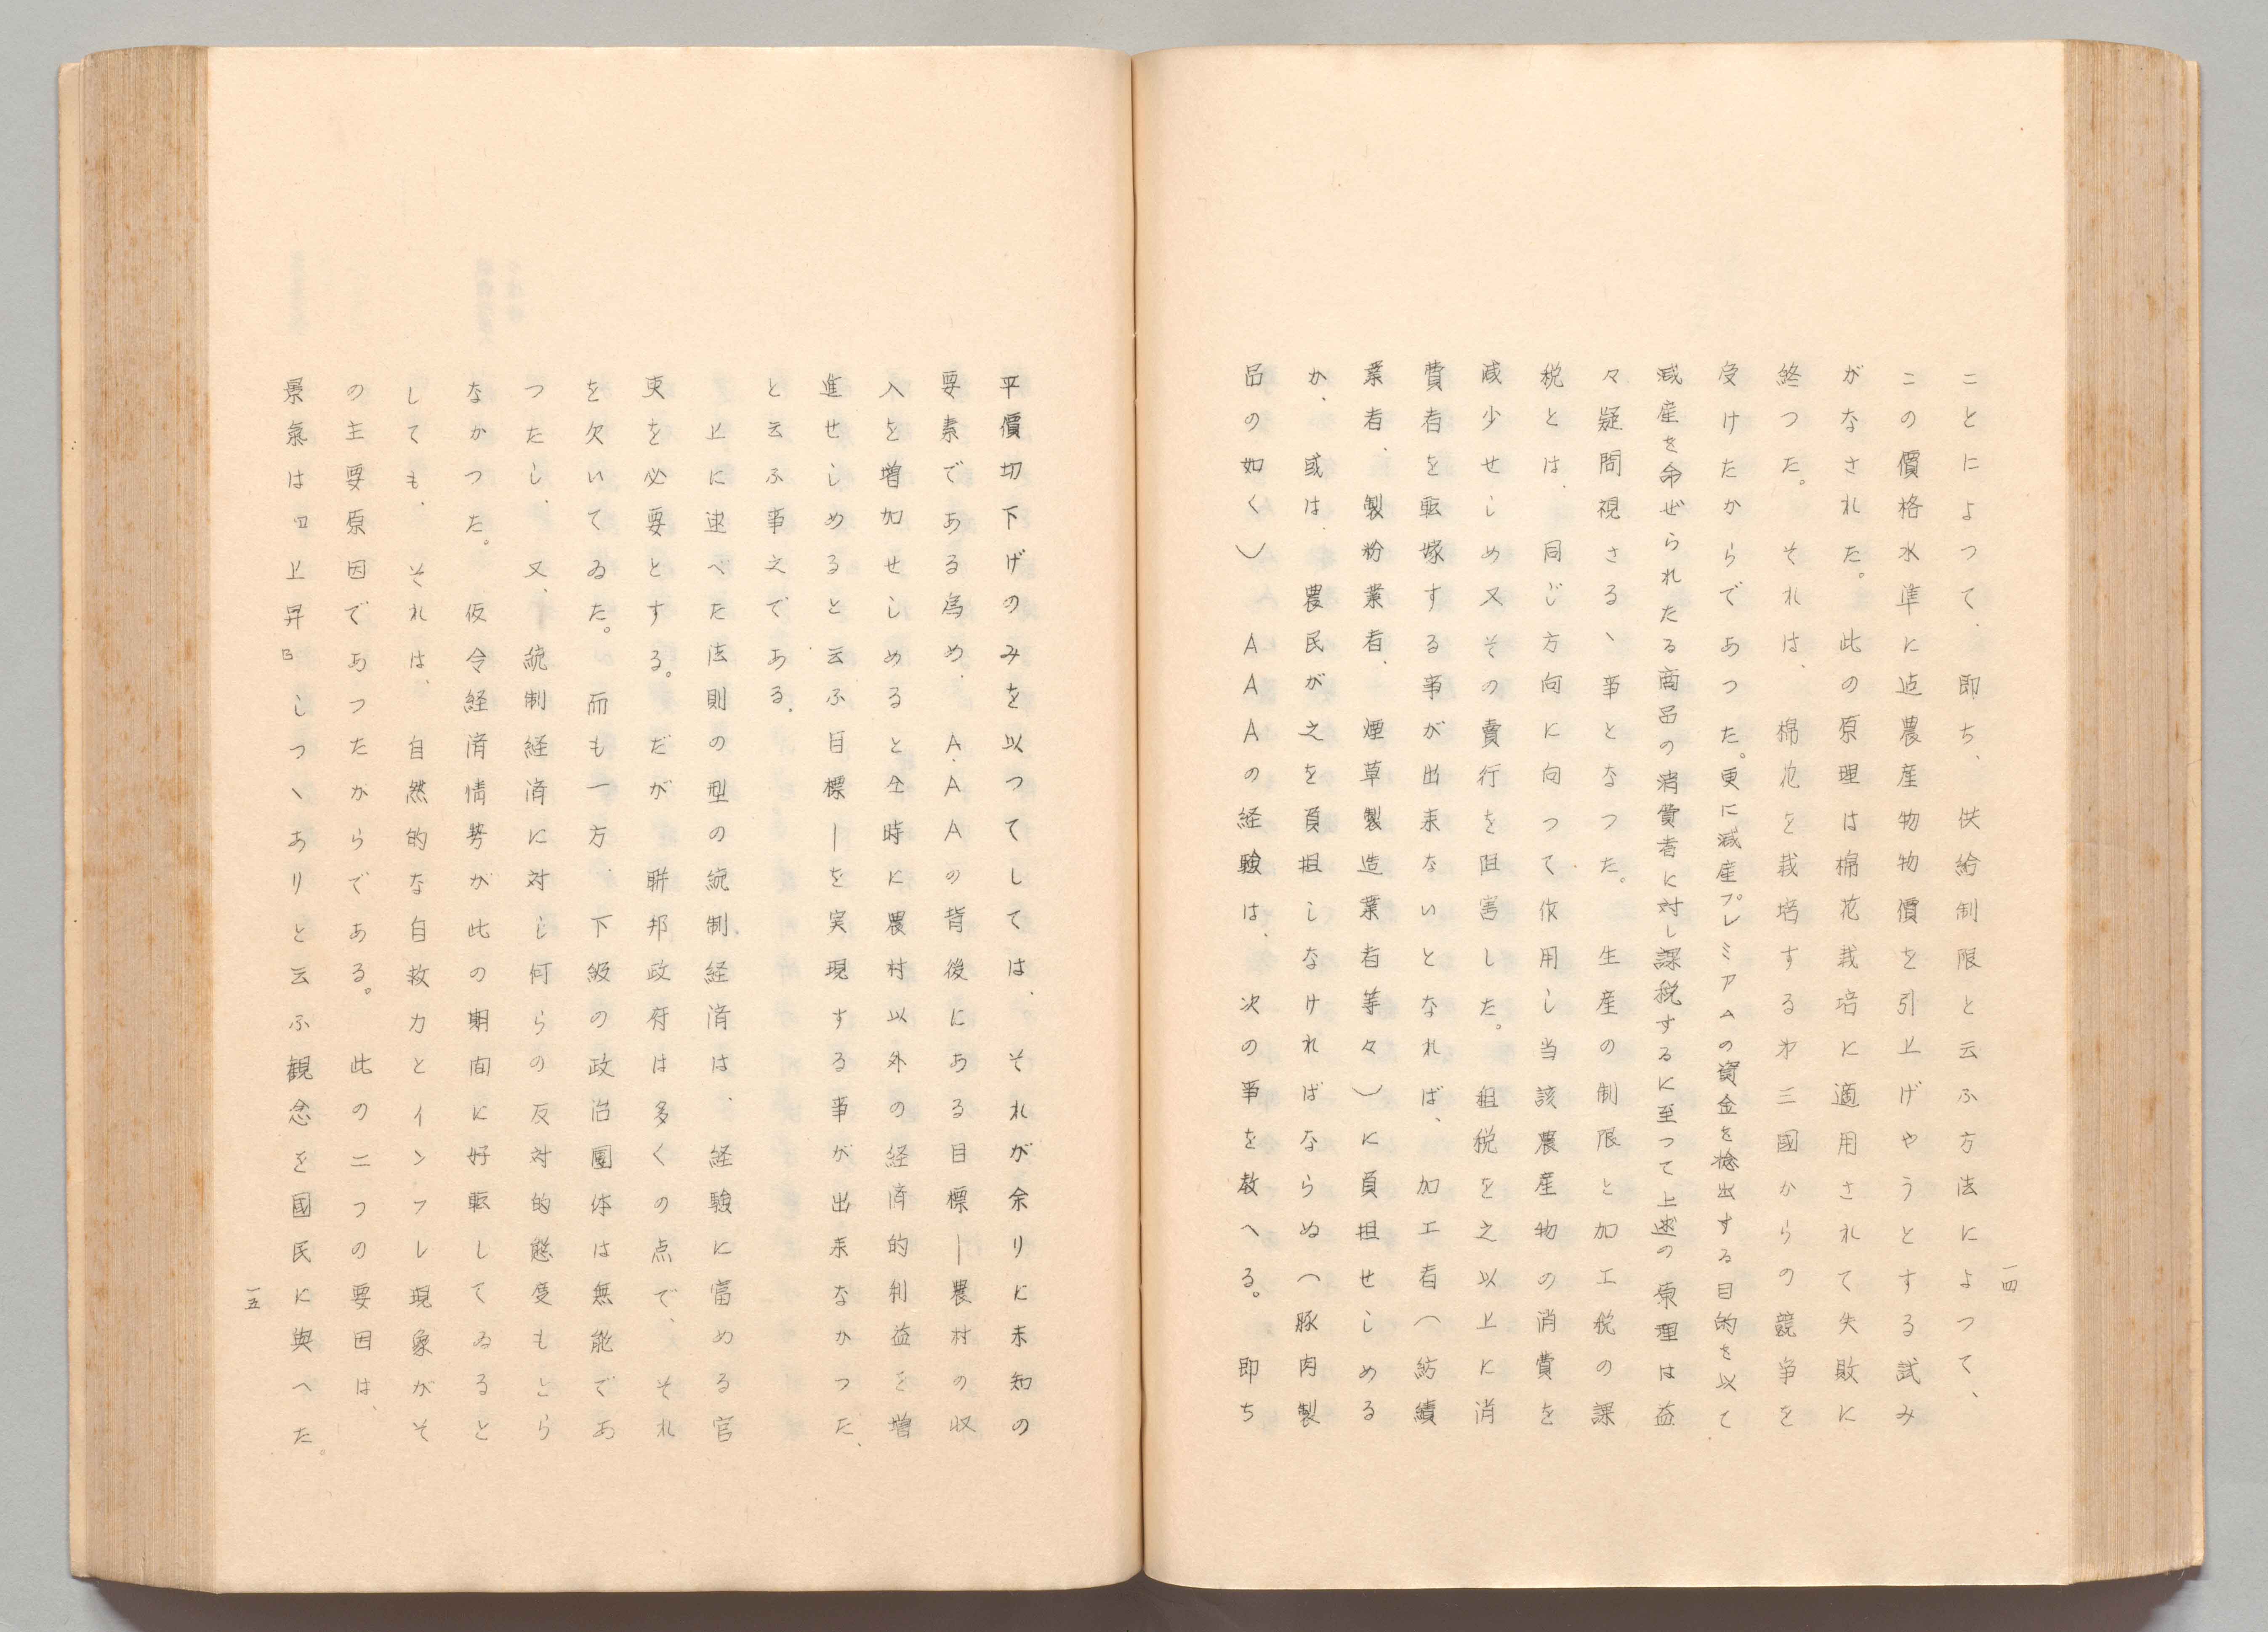 一四
ことによつて、即ち、供給制限と云ふ方法によつて、
この價格水準に迠農産物物價を引上げやうとする試み
がなされた。此の原理は棉花栽培に適用されて失敗に
終つた。それは、棉花を栽培する才三國からの競争を
受けたからであつた。更に減産プレミアムの資金を捻出する目的を以て
減産を命ぜられたる商品の消費者に対し課税するに至つて上述の原理は益
々疑問視さるヽ事となつた。生産の制限と加工税の課
税とは、同じ方向に向つて作用し当該農産物の消費を
減少せしめ又その賣行を阻害した。租税を之以上に消
費者を転嫁する事が出来ないとなれば、加工者（紡績
業者、製粉業者、煙草製造業者等々）に負担せしめる
か、或は、農民が之を負担しなければならぬ（豚肉製
品の如く）ＡＡＡの経験は、次の事を教へる。即ち
平價切下げのみを以つてしては、それが余りに未知の
要素である為め、Ａ.ＡＡの背後にある目標―農村の収
入を増加せしめると仝時に農村以外の経済的利益を増
進せしめると云ふ目標―を実現する事が出来なかつた、
と云ふ事之である.
上に述べた法則の型の統制経済は、経験に富める官
吏を必要とする。だが聨邦政府は多くの点で、それ
を欠いてゐた。而も一方、下級の政治團体は無能であ
つたし、又、統制経済に対し何らの反対的態度もとら
なかつた。仮令経済情勢が此の期間に好転してゐると
しても、それは、自然的な自救力とインフレ現象がそ
の主要原因であつたからである。此の二つの要因は、
景氣は『上昇』しつヽありと云ふ観念を國民に與へた。
一五